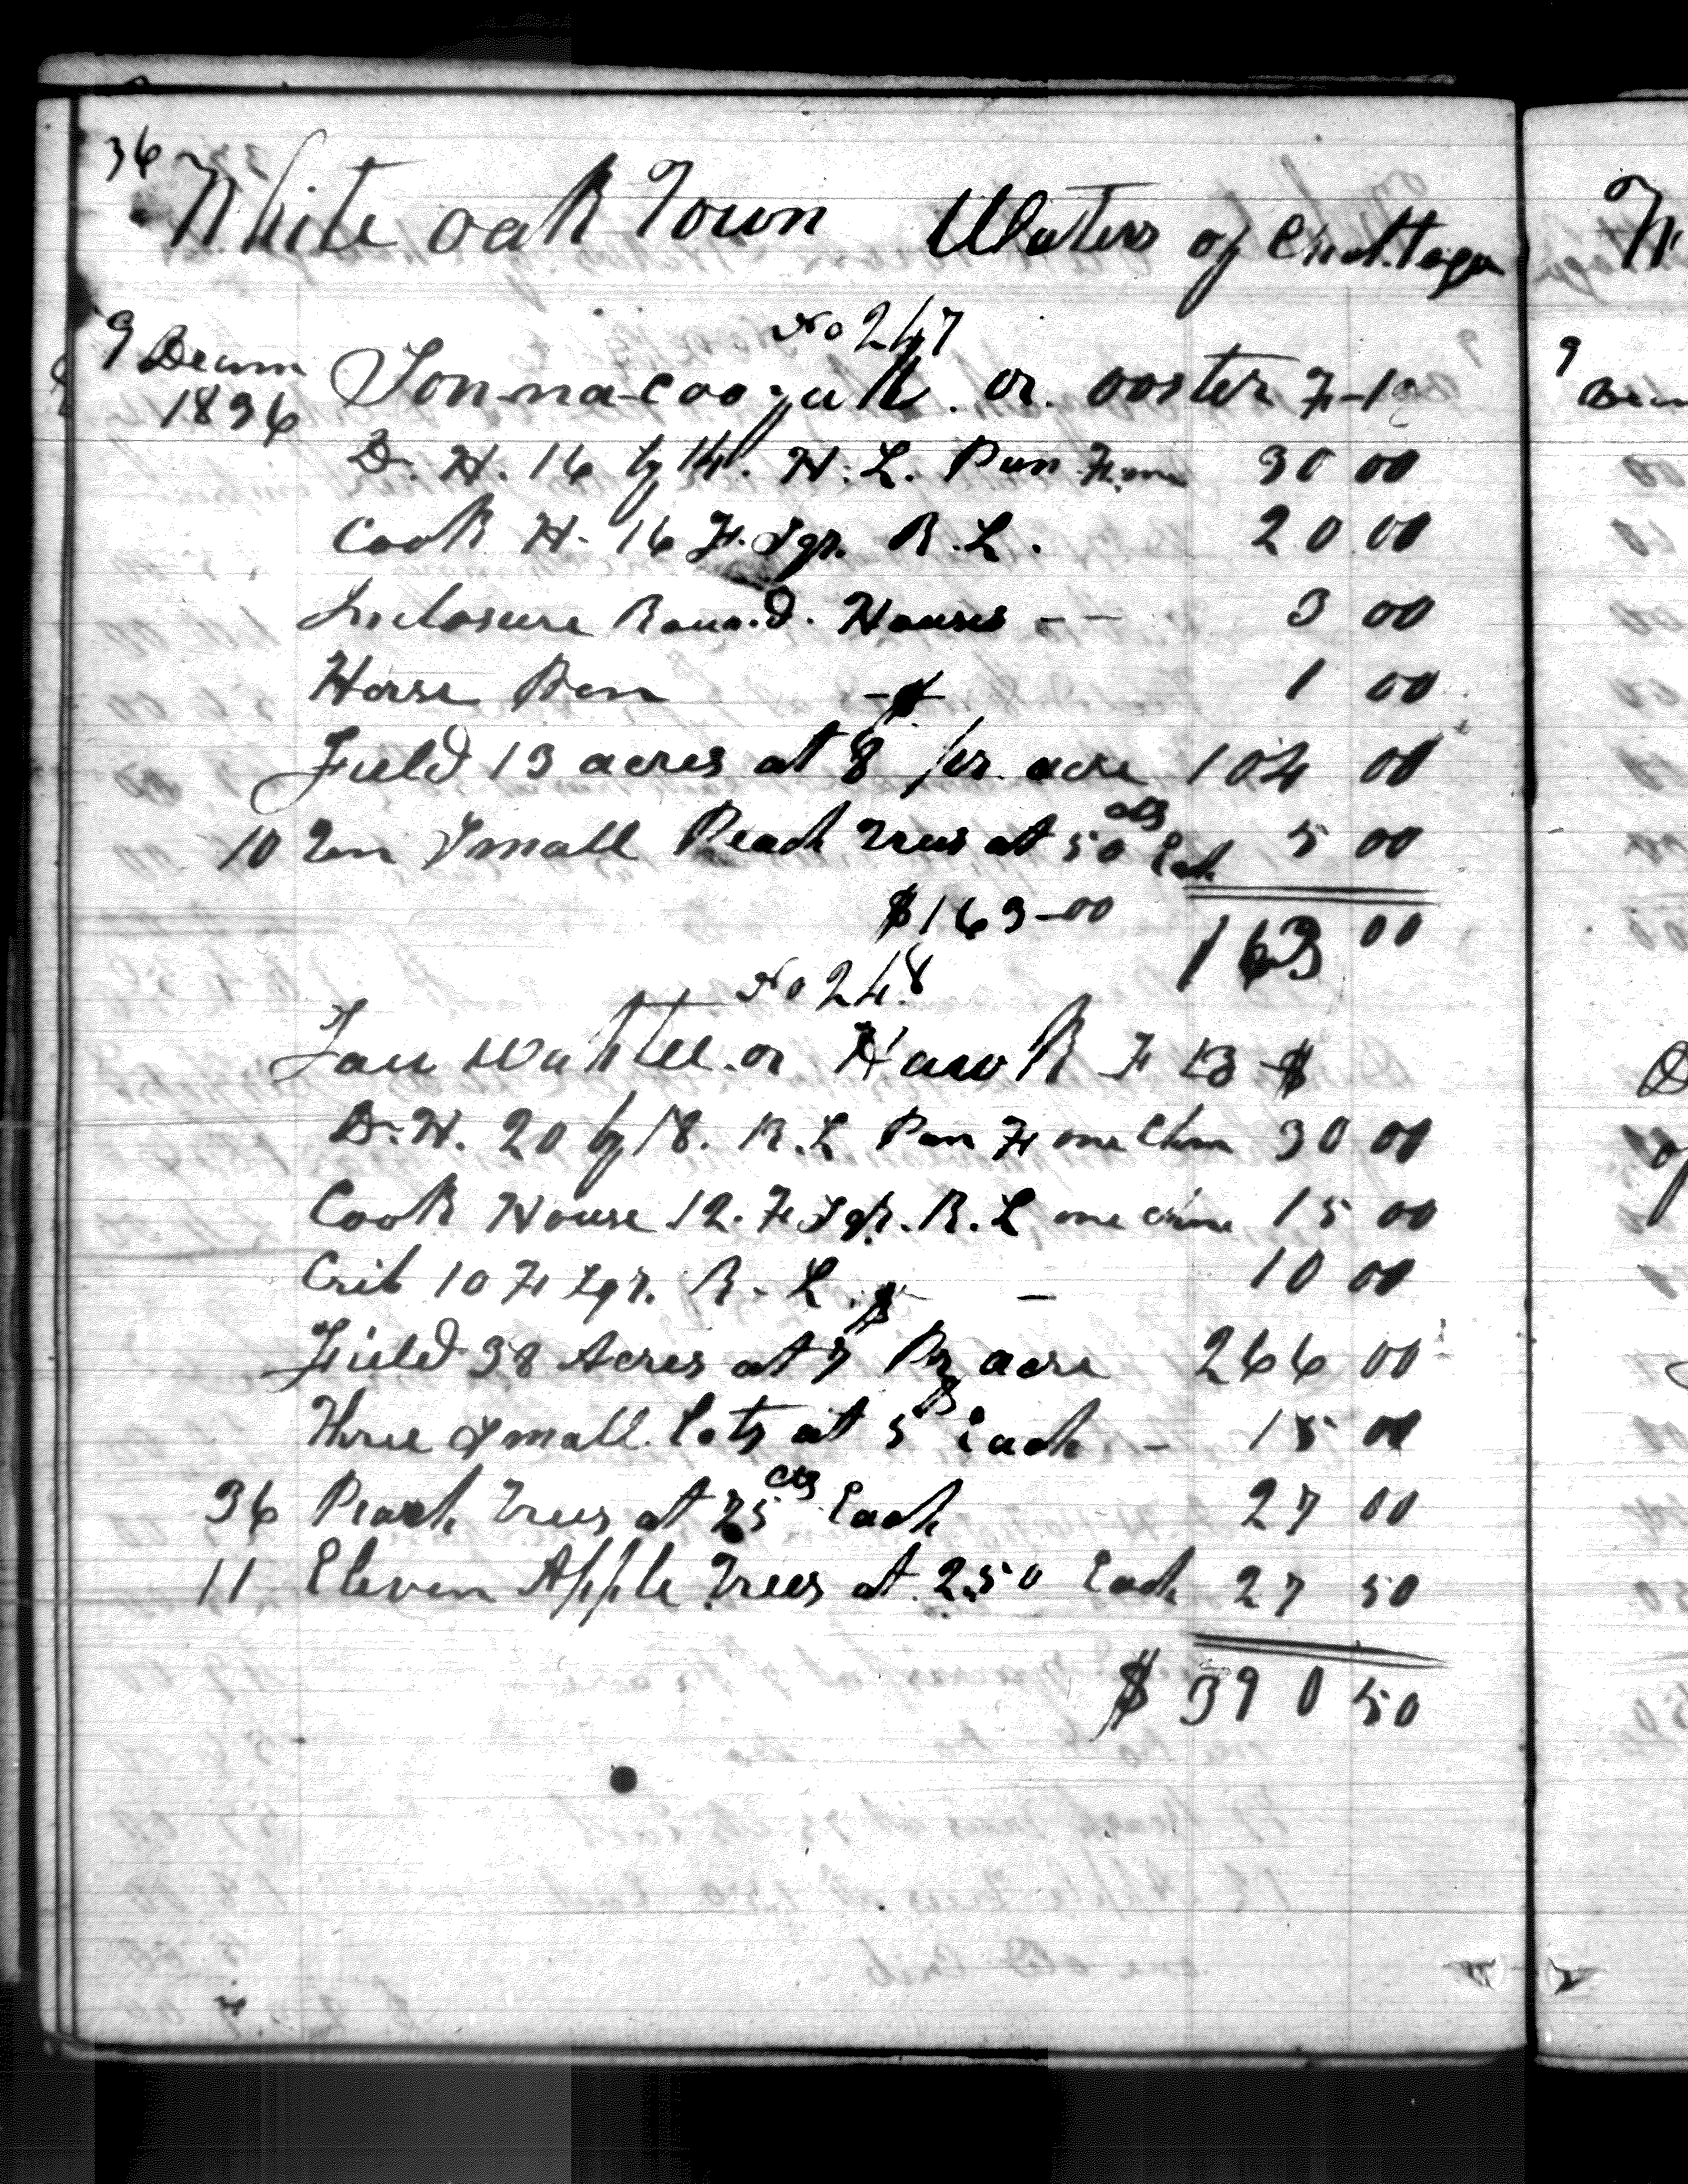 36
White oak Town Waters of Chattooga
No 247
9 Decem 1836
Ton-na-coo-yah or ooster F-13
D. H. 16 by 14. H. L. Pun F. one 30 00
Cook H. 16 F. Sqr. R. L. 20 00
Inclosure Round Houses - - 3 00
Horse Pen - 1 00
Field 13 acres at $8 per acre 104 00
10 Ten Small Peach Trees at 50 cts Each 5 00
$163-00 163 00
No 248
Tau wattee or Hawk F 13 $
D. H. 20 by 18. R. L Pun F one Chm 30 00
Cook House 12. F Sqr. R. L one chm 15 00
Crib 10 F Sqr. R. L. - 10 00
Field 38 Acres at $7 Pr acre 266 00
Three Small Lots at 5$ Each - 15 00
36 Peach Trees at 75 cts Each 27 00
11 Eleven Apple Trees at 2.50 Each 27 50
$ 390 50